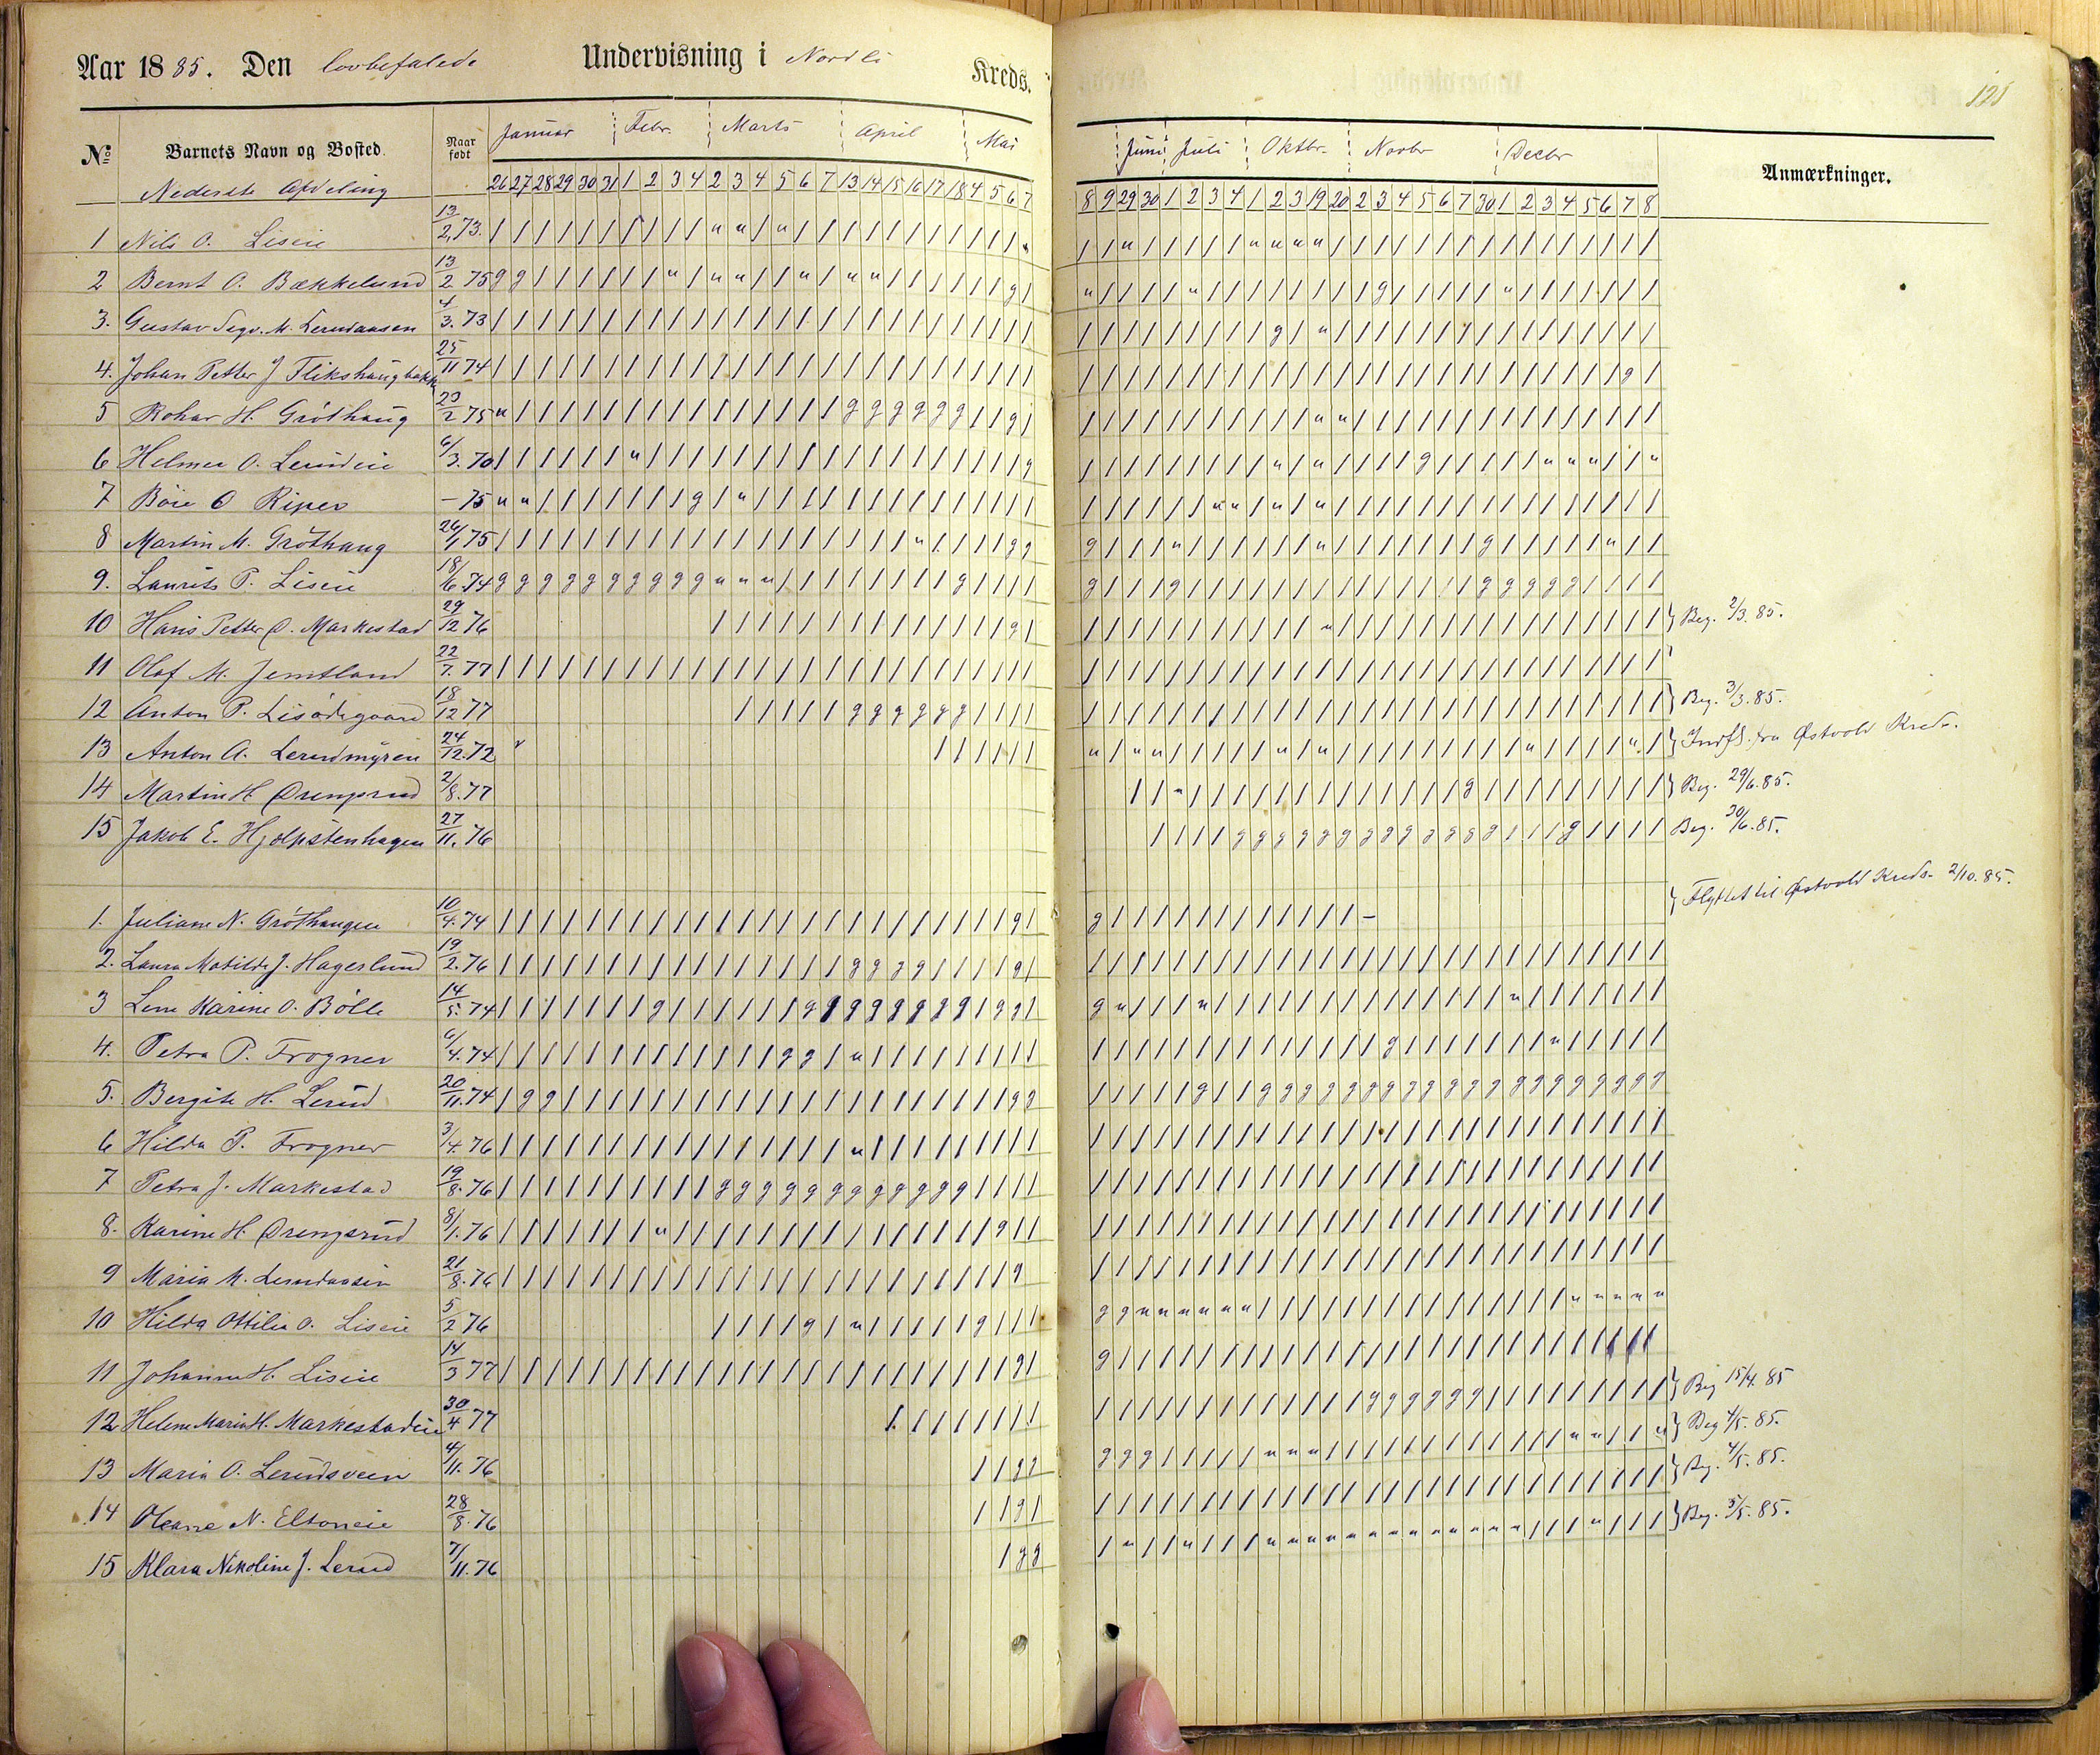 Aar 1885. Den lovbefalede Undervisning i Nordli Kreds.
121
No Barnets Navn og Bosted. Naar født Januar Febr. Marts April Mai Juni Juli Oktbr. Novbr Decbr Anmærkninger.
Nederste Afdeling 26 27 28 29 30 31 1 2 3 4 2 3 4 5 6 7 13 14 15 16 17 18 4 5 6 7 8 9 29 30 1 2 3 4 1 2 3 19 20 2 3 4 5 6 7 30 1 2 3 4 5 6 7 8
1 Nils O. Liseie 13/2.73.
2 Bernt O. Bækkelund 13/2 75
3. Gustav Segv. M. Lerudaasen 4/3.73
4. Johan Petter J Flikshaugbakk 25/11 74
5 Rohar H. Gróthaug 23/2 75
6 Helmer O. Lerudeie 6/3.70
7 Böie O Ripes –75
8 Martin M. Gróthaug 26/1 75
9. Laurits P. Liseie 18/6.74
10 Hans Petter O. Markestad 29/12 76 } Beg. 2/3.85.
11 Olaf M. Jemtland 22/7.77
12 Anton P. Lisödegaard 18/12 77 } Beg. 3/3.85.
13 Anton A. Lerudmyren 24/12.72 } Indfl. fra Østvold Kreds.
14 Martin H Ørengsrud 2/8.77 } Beg. 29/6.85.
15 Jakob E. Hjelpstenhagen 27/11.76 Beg. 30/6.85.
1. Juliane N. Gróthaugen 10/4.74 } Flyttet til Østvold Kreds 2/10.85.
2. Laura Matilde J. Hagerlund 19/2.76
3 Lene Karine O. Bólle 14/5.74
4. Petra P. Frogner 6/4.74
5. Bergite H. Lerud 20/11.74
6 Hilda P. Frogner 3/4.76
7 Petra J. Markestad 19/8.76
8. Karine H. Ørengsrud 8/1.76
9 Maria M. Lerudaasen 21/8.76
10 Hilda Ottilia O. Liseie 5/2 76
11 Johanne H. Liseie 14/3 77
12 Helene Marie H. Markestadeie 30/4 77 } Beg 15/4.85
13 Maria O. Lerudsveen 4/11.76 } Beg 4/5.85.
14 Oleane N. Eltoneie 28/8.76 } Beg. 4/5.85.
15 Klara Nikoline J. Lerud 7/11.76 } Beg. 5/5.85.